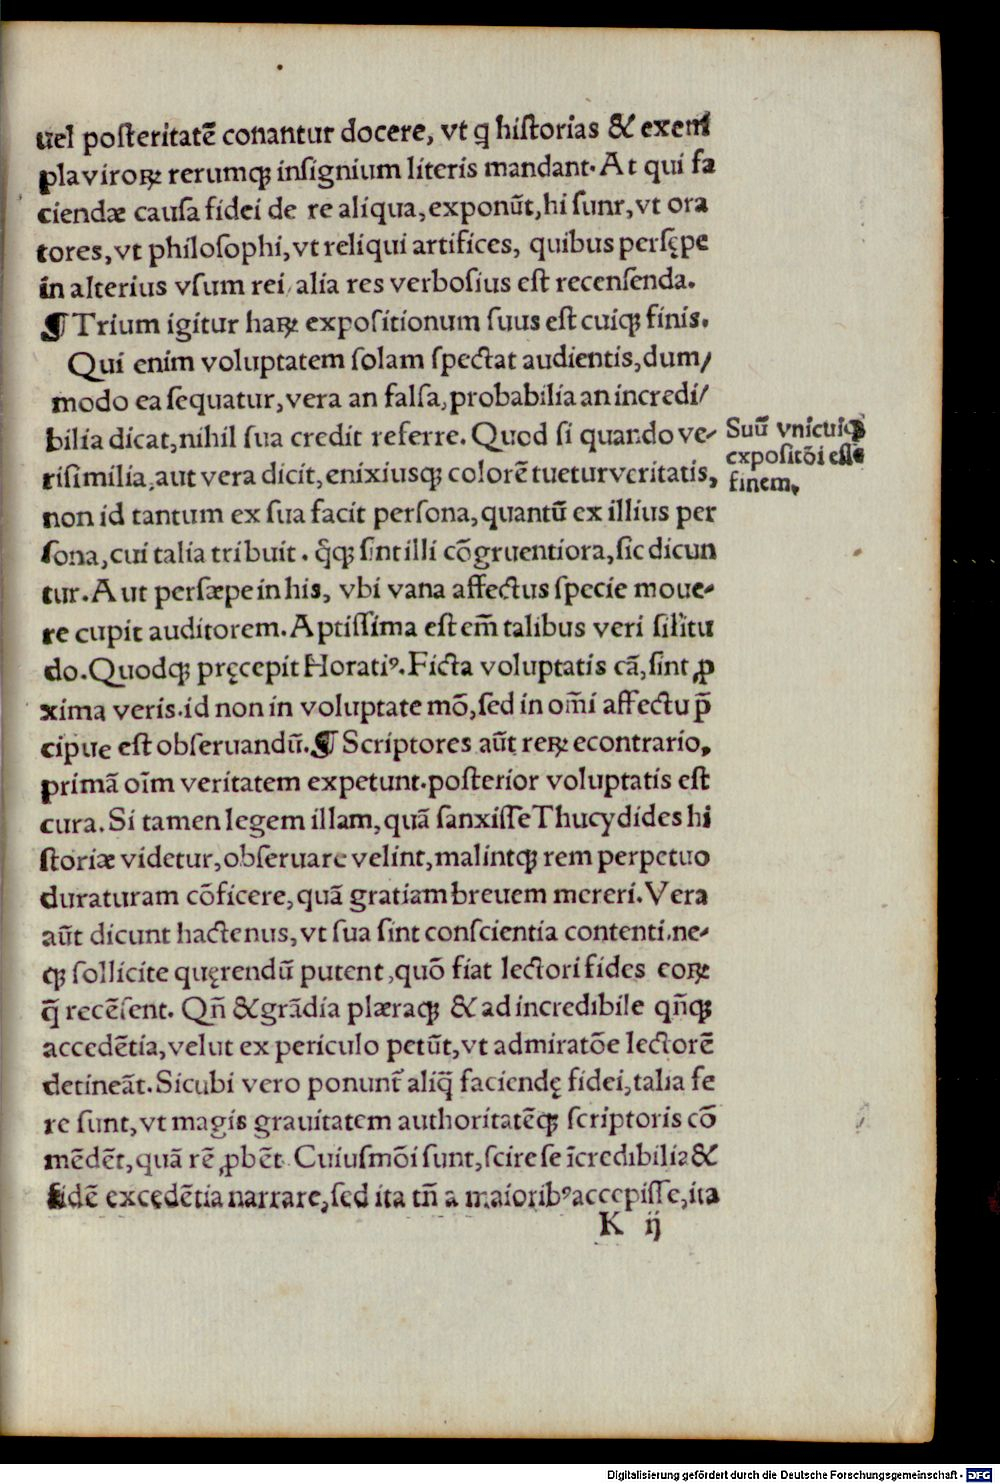 uel posteritatē conantur docere, vt q̨ historias & exem
pla viroꝝ rerumꝙ insignium literis mandant. At qui fa
ciendæ causa fidei de re aliqua, exponūt, hi sunr, vt ora
tores, vt philosophi, vt reliqui artifices, quibus persępe
in alterius vsum rei alia res verbosius est recensenda.
¶ Trium igitur haꝝ expositionum suus est cuiꝙ finis.
Qui enim voluptatem solam spectat audientis, dum/
modo ea sequatur, vera an falsa, probabilia an incredi/
bilia dicat, nihil sua credit referre. Quod si quando ve-
risimilia, aut vera dicit, enixiusꝙ colorē tuetur veritatis,
non id tantum ex sua facit persona, quantū ex illius per
sona, cui talia tribuit. q̄ꝙ sint illi cōgruentiora, sic dicun
tur. Aut persæpe in his, vbi vana affectus specie moue-
re cupit auditorem. Aptissima est em̄ talibus veri sil'itu
do. Quodꝙ pręcepit Horatiꝰ. Ficta voluptatis cā, sint ꝓ
xima veris. id non in voluptate mō, sed in om̄i affectu p̄
cipue est obseruandū. ¶ Scriptores aūt reꝝ econtrario,
primā oīm veritatem expetunt. posterior voluptatis est
cura. Si tamen legem illam, quā sanxisse Thucydides hi
storiæ videtur, obseruare velint, malintꝙ rem perpetuo
duraturam cōficere, quā gratiam breuem mereri. Vera
aūt dicunt hactenus, vt sua sint conscientia contenti. ne-
ꝙ sollicite quęrendū putent, quō fiat lectori fides eoꝝ
q̄ recēsent. Qn̄ & grādia plæraꝙ & ad incredibile qn̄ꝙ
accedētia, velut ex periculo petūt, vt admiratōe lectorē
detineāt. Sicubi vero ponunt̄ aliq̄ faciendę fidei, talia fe
re sunt, vt magis grauitatem authoritatēꝙ scriptoris cō
mēdēt, quā rē ꝓbēt. Cuiusmōi sunt, scire se īcredibilia &
fidē excedētia narrare, sed ita tn̄ a maioribꝰ accepisse, ita
K ij
Suū vnicuiꝙ
expositōi esse
finem.
Digitalisierung gefördert durch die Deutsche Forschungsgemeinschaft - DFG